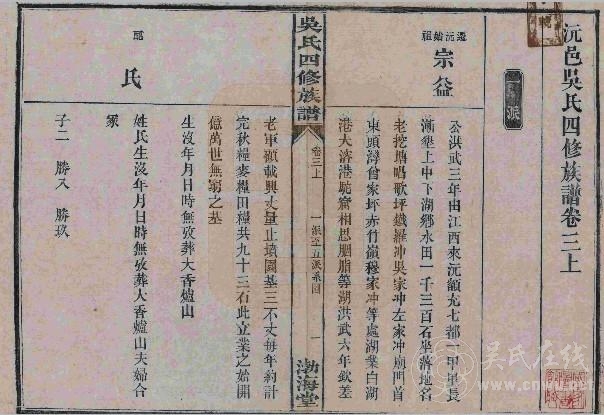 沅邑吳氏四修族譜卷三上
派
遷沅始祖
宗益
公洪武三年由江西來沅領充七都一甲里長
漸壆上中下湖鄉水田一千三百石坐落地名
老挖塘唱歌坪鐵羅冲吳家冲左家冲廟門首
東頭灣曾家坪赤竹嶺穆家冲等處湖業白湖
港大溶港駝窩相思胭脂等湖洪武六年欽差
吳氏四修族譜
卷三上
一派至五派系圖
一
渤海堂
老軍領載興丈量止墳園基三不丈每年約計
完秋糧麥糧田糧共九十三石此立業之始開
億萬世無窮之基
生沒年月日時無攷葬大香爐山
配
氏
姓氏生沒年月日時無攷葬大香爐山夫婦合
冢
子二 勝又 勝玖
吳氏在线